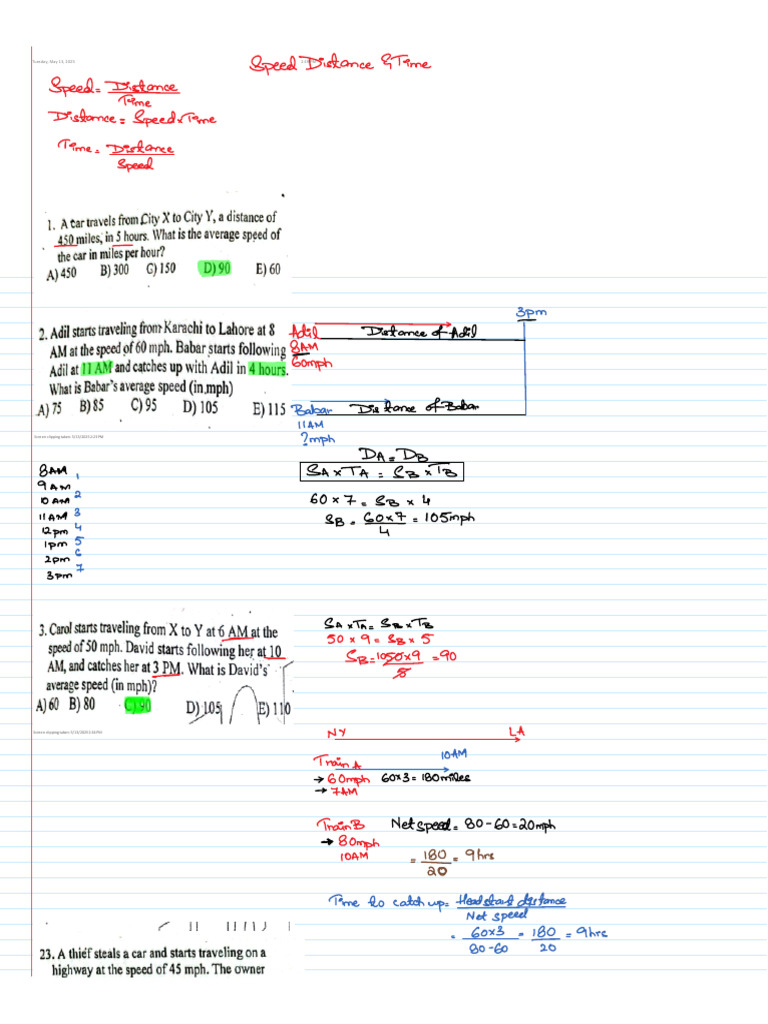 Tuesday, May 13, 2025
Speed Distance & Time
Speed = Distance
Time
Distance = Speed × Time
Time = Distance
Speed
1. A car travels from City X to City Y, a distance of
450 miles, in 5 hours. What is the average speed of
the car in miles per hour?
A) 450 B) 300 C) 150 D) 90 E) 60
3pm
2. Adil starts traveling from Karachi to Lahore at 8
AM at the speed of 60 mph. Babar starts following
Adil at 11 AM and catches up with Adil in 4 hours.
What is Babar's average speed (in mph)
A) 75 B) 85 C) 95 D) 105 E) 115
Adil Distance of Adil
8AM
60mph
Babar Distance of Babar
11AM
? mph
Screen clipping taken: 5/13/2025 2:23 PM
8AM 1
9AM
10AM 2
11AM 3
12pm 4
1pm 5
2pm 6
3pm 7
DA = DB
SA × TA = SB × TB
60 × 7 = SB × 4
SB = 60×7 = 105mph
4
3. Carol starts traveling from X to Y at 6 AM at the
speed of 50 mph. David starts following her at 10
AM, and catches her at 3 PM. What is David's
average speed (in mph)?
A) 60 B) 80 C) 90 D) 105 E) 110
SA × TA = SB × TB
50 × 9 = SB × 5
SB = 10 50 × 9 = 90
5
NY LA
10AM
Train A
→ 60mph 60×3 = 180miles
→ 7AM
Train B Net speed = 80-60 = 20mph
→ 80mph
10AM = 180 = 9hrs
20
Time to catch up = Headstart distance
Net speed
= 60×3 = 180 = 9hrs
80-60 20
23. A thief steals a car and starts traveling on a
highway at the speed of 45 mph. The owner